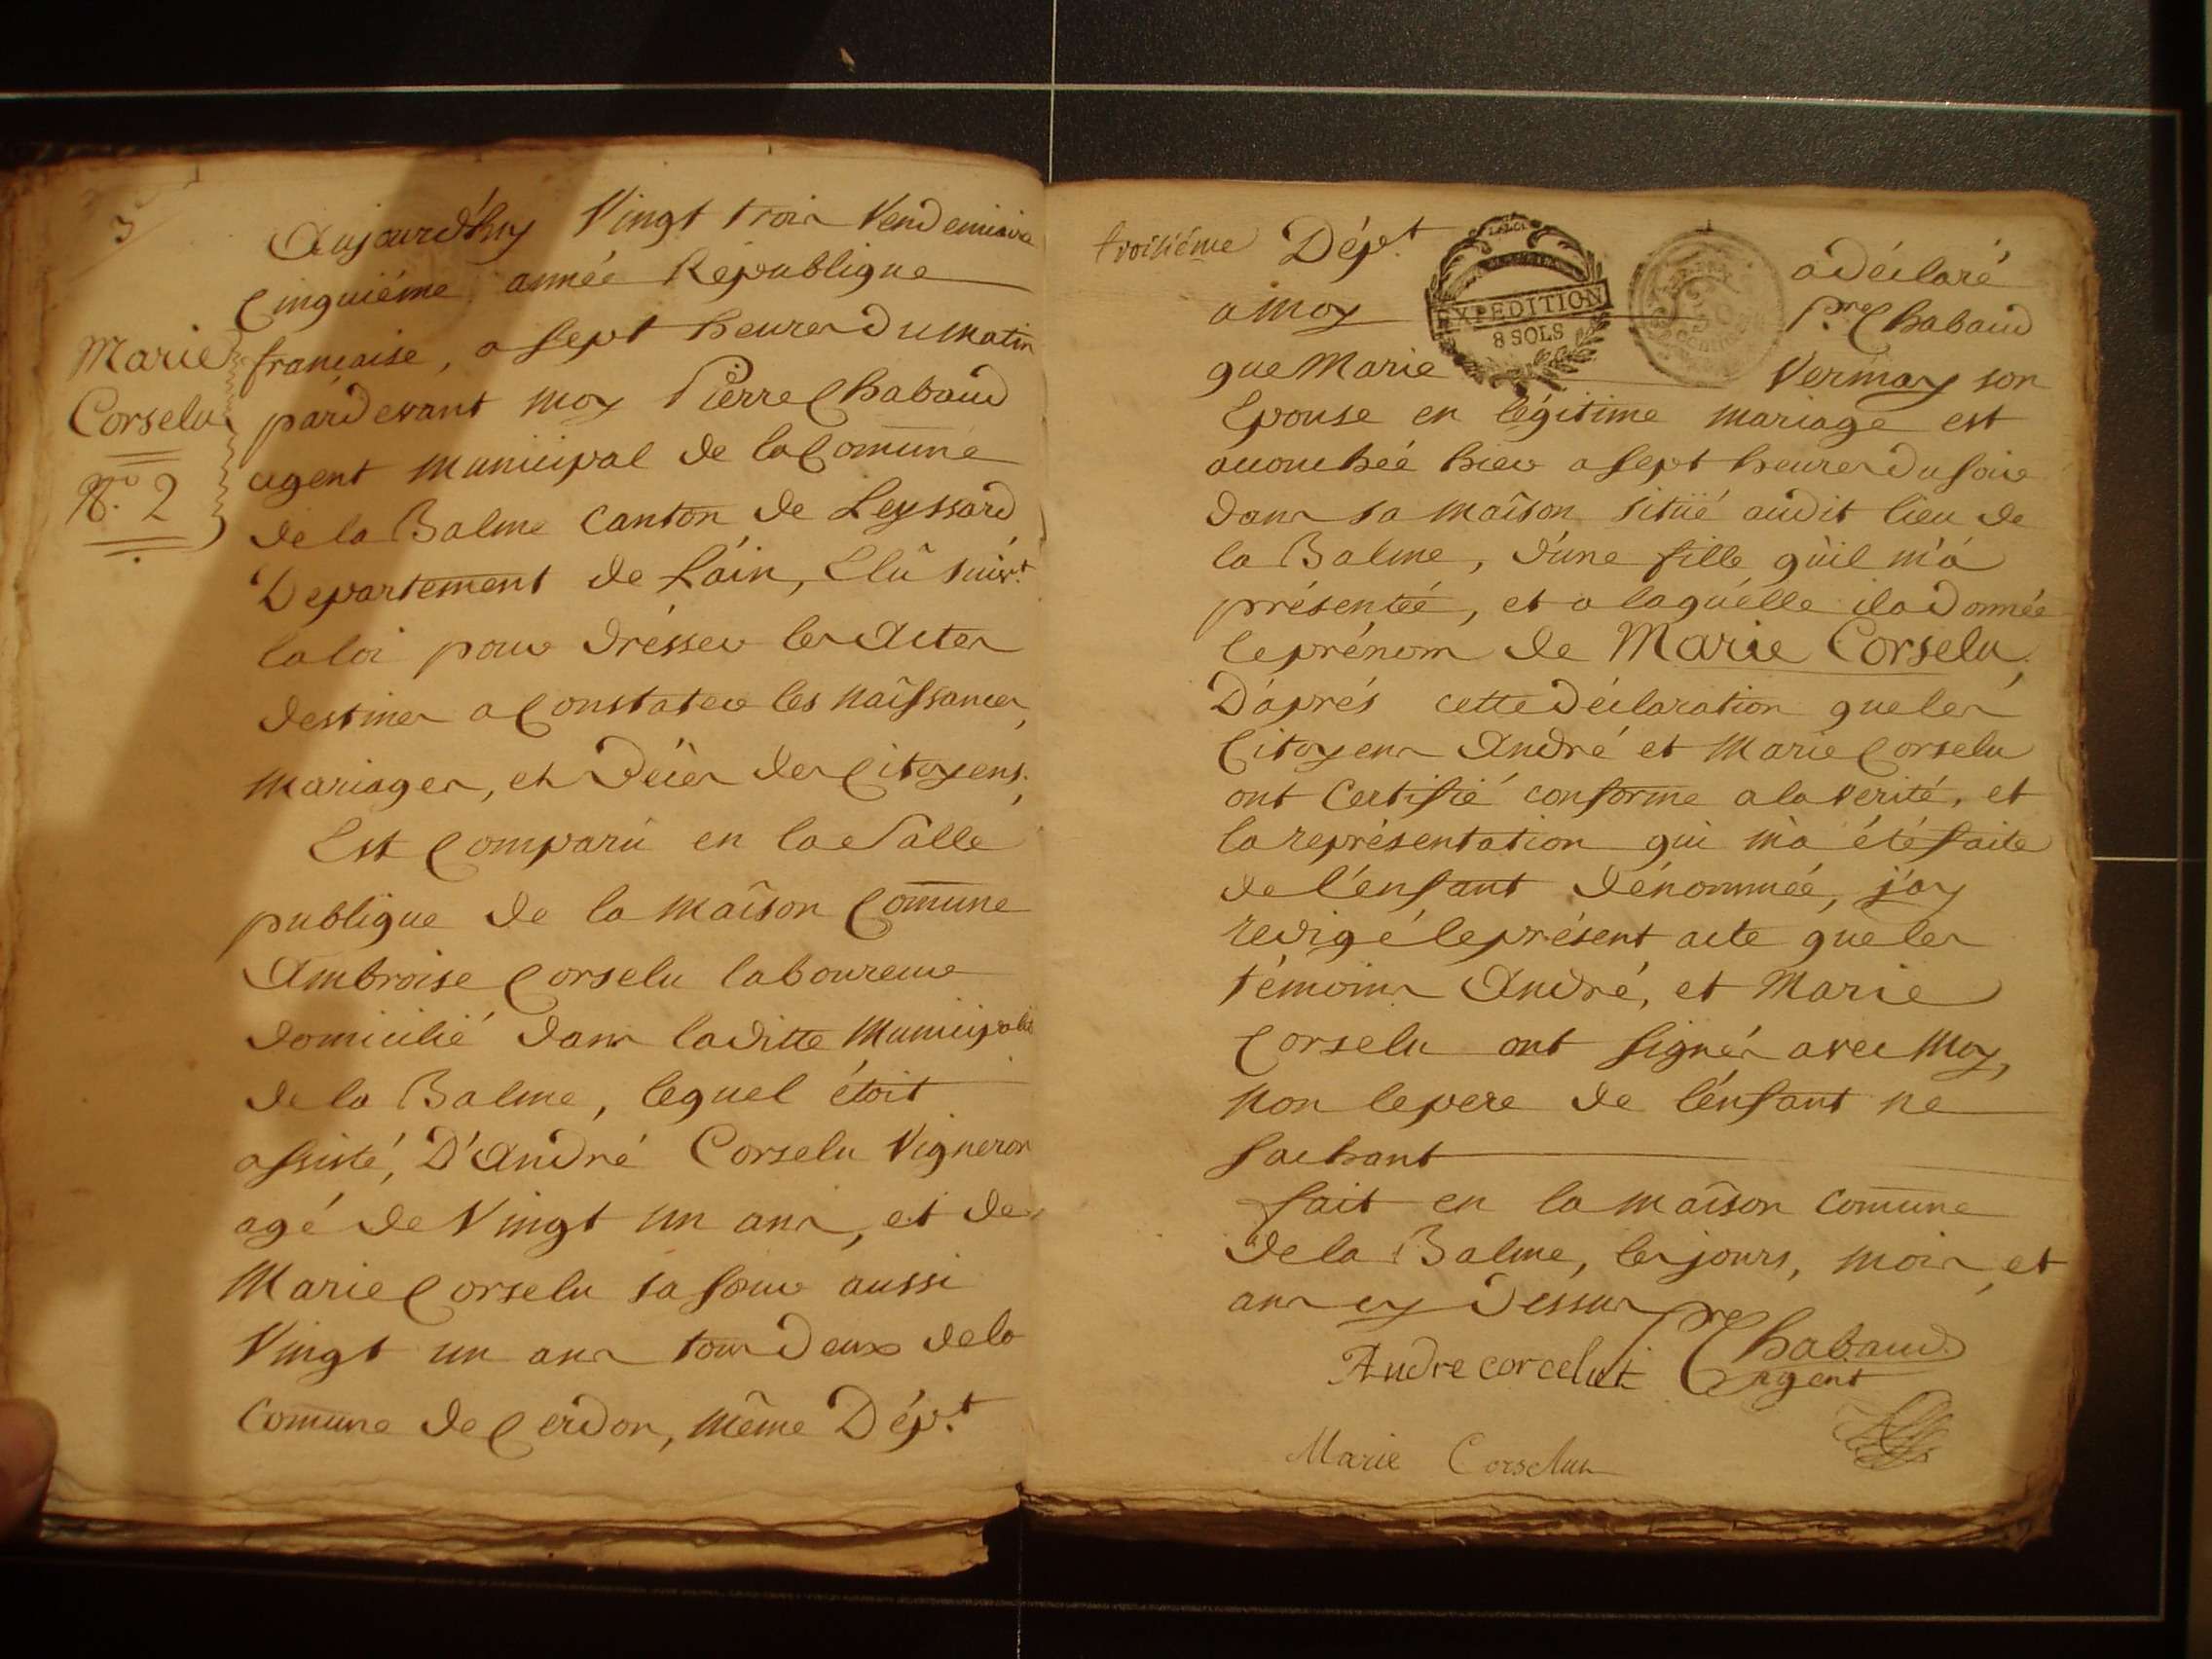 3
Marie
Corselu
N.º 2
Aujourd'huy Vingt trois Vendemiaire
Cinquiéme année Republique
française, a sept heures du matin
pardevant moy Pierre Chabaud
agent municipal de la Comune
de la Balme Canton de Leyssard
Departement de L'ain, Elû suiv.t
la loi pour drésser les Actes
destines a Constater les naîssances,
mariages, et décès des Citoyens;
Est Comparû en la Salle
publique de la maîson Comune
Ambroise Corselu laboureur
domicilié dans laditte Municipalité
de la Balme, lequel étoit
assisté, D'André Corselu Vigneron
agé de Vingt un ans, et de
Marie Corselu sa soeur aussi
Vingt un ans tous deux de la
Comune de Cerdon, même Dép.t
troisiéme Dép.t
EXPEDITION
8 SOLS
50
Centimes
a déclaré
a moy P.re Chabaud
que Marie Vermay son
Epouse en légitime mariage est
accouchée hier a sept heures du soir
dans sa maîson sitüé audit lieu de
la Balme, d'une fille qu'il m'à
présenteé, et a laquélle il a donnée
le prénom de Marie Corselu,
D'áprés cette déclaration que les
Citoyens André et Marie Corselu
ont Certifié conforme a la verité, et
la représentation qui m'a été faite
de l'énfant dénommée, j'ay
redigé le présent acte que les
témoins André, et Marie
Corselu ont signés avec moy,
non le pere de l'énfant ne
sachant
fait en la maîson Comune
de la Balme, les jours, mois, et
ans cy dessus
P.re Chabaud
Andre corcelut agent
Marie Corselun